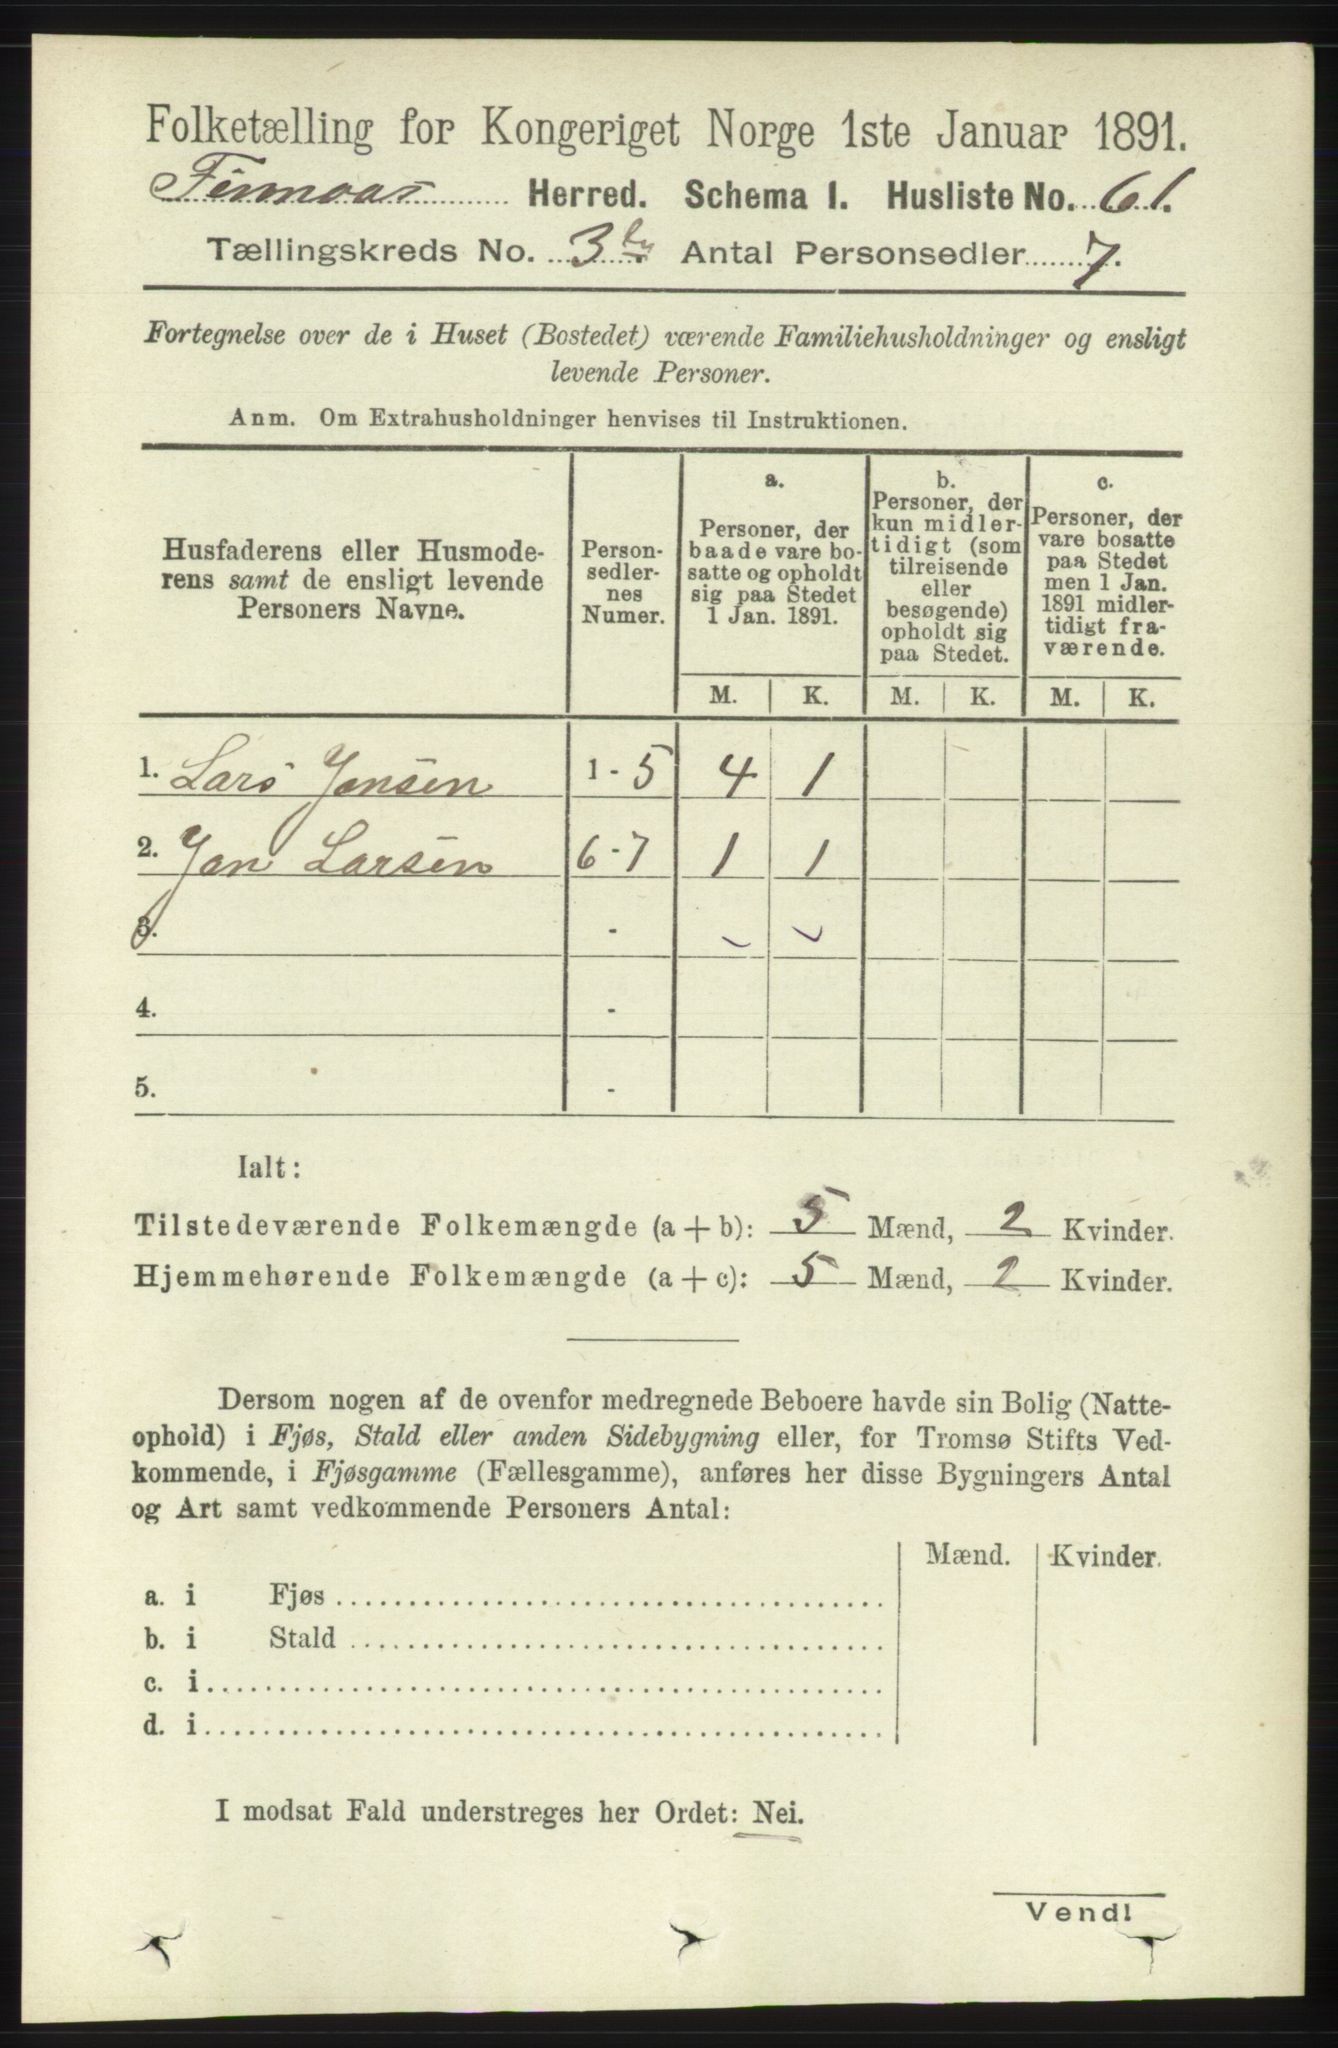 Folketælling for Kongeriget Norge 1ste Januar 1891.
Finnaas Herred. Schema 1. Husliste No. 61.
Tællingskreds No. 3 Antal Personsedler 7.
Fortegnelse over de i Huset (Bostedet) værende Familiehusholdninger og ensligt
levende Personer.
Anm. Om Extrahusholdninger henvises til Instruktionen.
Husfaderens eller Husmode-
rens samt de ensligt levende
Personers Navne.
Person-
sedler-
nes
Numer.
a.
Personer, der
baade vare bo-
satte og opholdt
sig paa Stedet
1 Jan. 1891.
b.
Personer, der
kun midler-
tidigt (som
tilreisende
eller
besøgende)
opholdt sig
paa Stedet.
c.
Personer, der
vare bosatte
paa Stedet
men 1 Jan.
1891 midler-
tidigt fra-
værende.
M. K. M. K. M. K.
1. Lars Jansen 1 - 5 4 1
2. Jan Larsen 6 - 7 1 1
3. -
4. -
5. -
Ialt:
Tilstedeværende Folkemængde (a + b): 5 Mænd, 2 Kvinder.
Hjemmehørende Folkemængde (a + c): 5 Mænd, 2 Kvinder.
Dersom nogen af de ovenfor medregnede Beboere havde sin Bolig (Natte-
ophold) i Fjøs, Stald eller anden Sidebygning eller, for Tromsø Stifts Ved-
kommende, i Fjøsgamme (Fællesgamme), anføres her disse Bygningers Antal
og Art samt vedkommende Personers Antal:
Mænd. Kvinder.
a. i Fjøs
b. i Stald
c. i
d. i
I modsat Fald understreges her Ordet: Nei.
Vend!